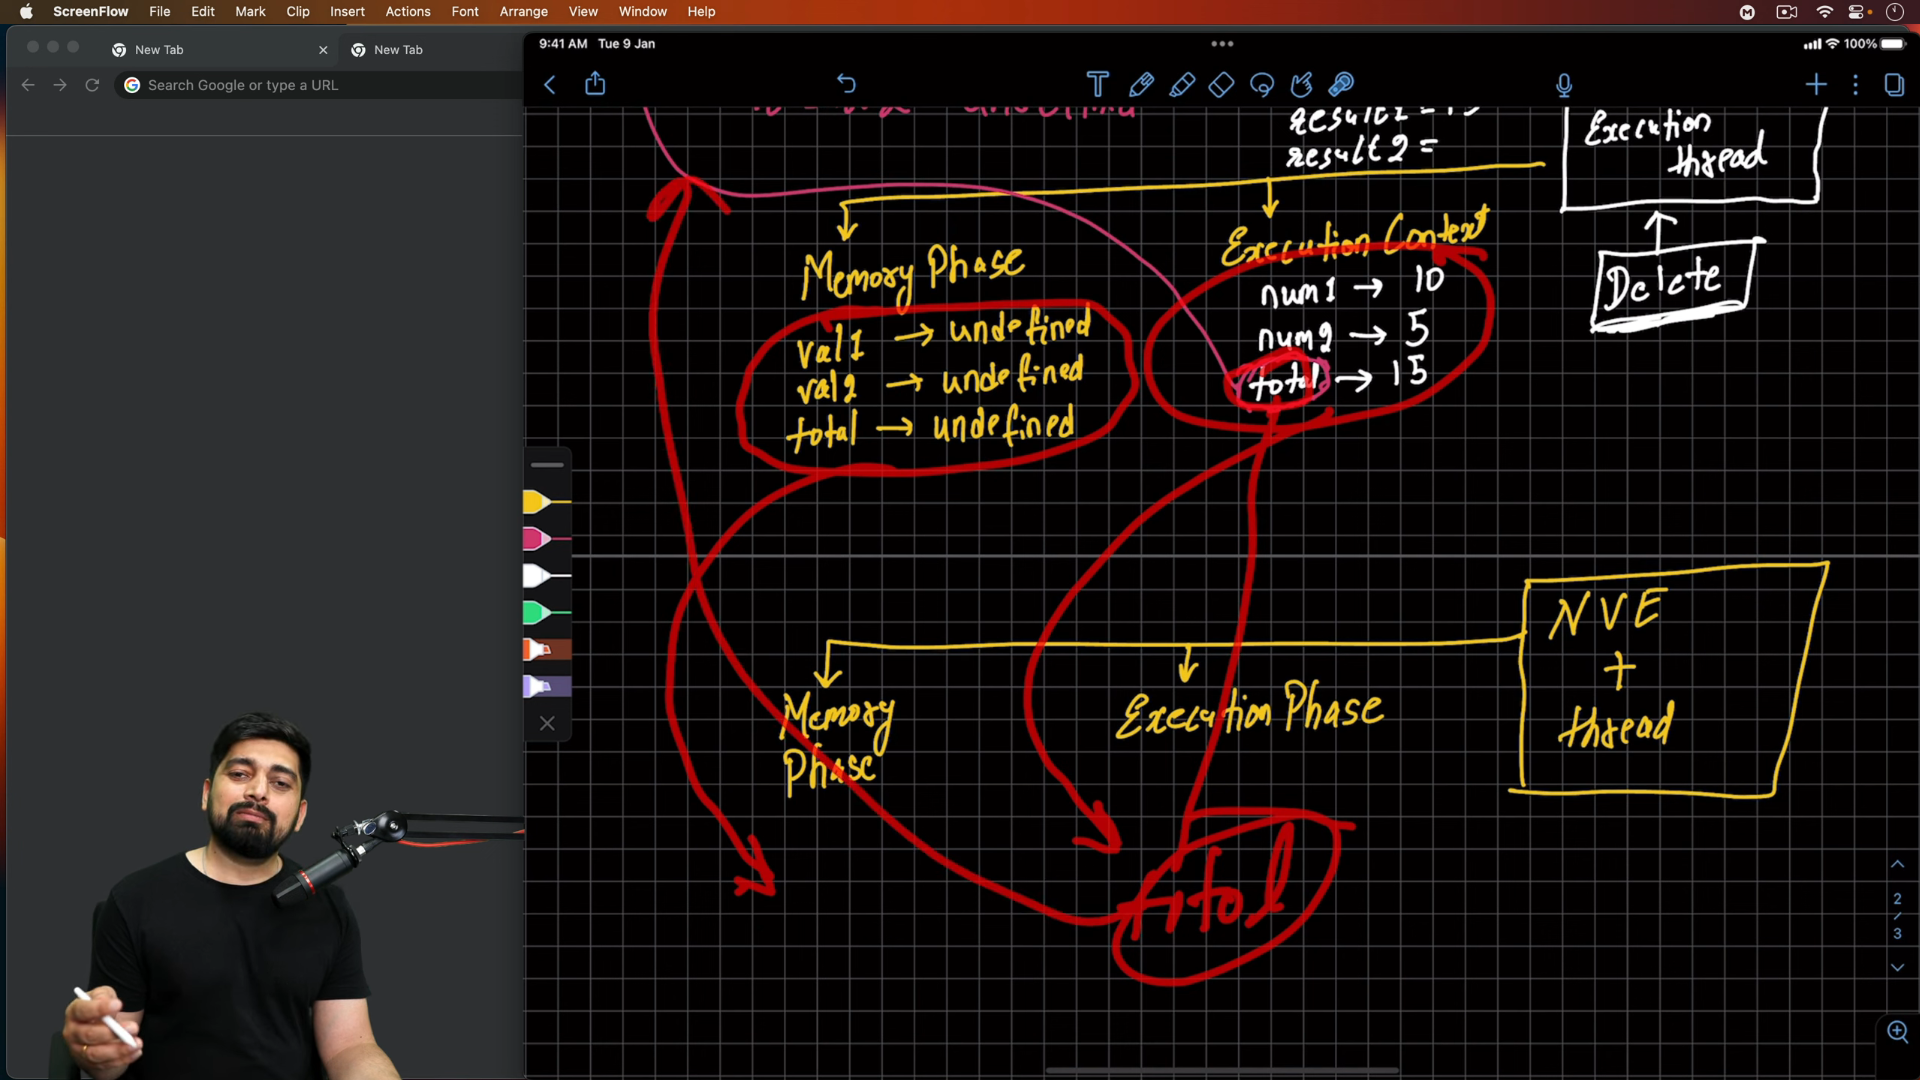 ScreenFlow File Edit Mark Clip Insert Actions Font Arrange View Window Help
New Tab
New Tab
Search Google or type a URL
9:41 AM Tue 9 Jan
100%
result2 =
Execution
thread
Delete
Memory Phase
val1 → undefined
val2 → undefined
total → undefined
Execution Context
num1 → 10
num2 → 5
total → 15
NVE
+
thread
Memory
Phase
Execution Phase
total
2
/
3